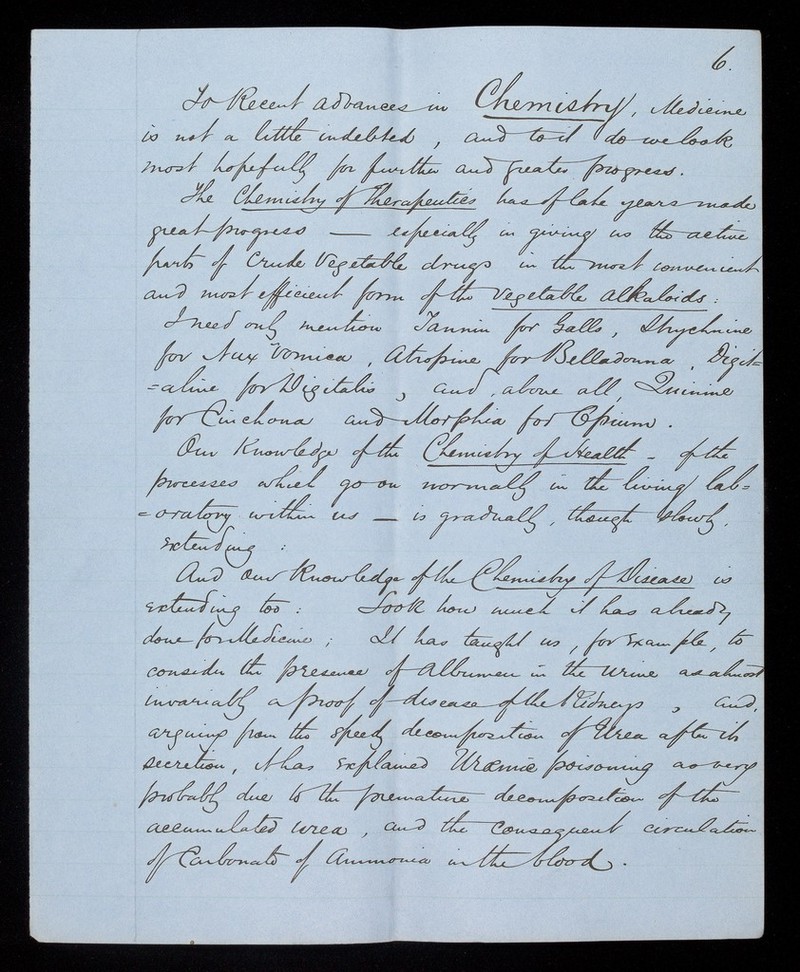 6.
To Recent advances in Chemistry, Medicine
is not a little indebted, and to it do we look
most hopefully for further and greater progress.
The Chemistry of Therapeutics has of late years made
great progress — especially in giving us the active
parts of Crude Vegetable drugs in the most convenient
and most efficient form of the Vegetable Alkaloids:
I need only mention Tannin for Galls, Strychnine
for Nux Vomica, Atropine for Belladonna, Digit=
=aline for Digitalis, and, above all, Quinine
for Cinchona and Morphia for Opium.
Our Knowledge of the Chemistry of Health - of the
processes which go on normally in the living lab=
=oratory within us — is gradually, though slowly,
extending:
And our Knowledge of the Chemistry of Disease is
extending too: Look how much it has already
done for Medicine; It has taught us, for example, to
consider the presence of Albumen in the Urine as almost
invariably a proof of disease of the Kidneys, and,
arguing from the speedy decomposition of Urea after its
secretion, it has explained Uræmic poisoning as very
probably due to the premature decomposition of the
accumulated urea, and the consequent circulation
of Carbonate of Ammonia in the blood.